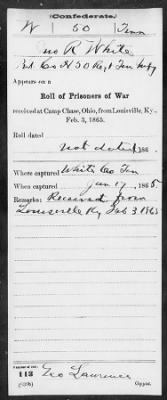 Confederate.
W 50 Tenn
Jno R White
Pvt Co H 50 Regt Tenn Infty
Appears on a
Roll of Prisoners of War
received at Camp Chase, Ohio, from Louisville, Ky.,
Feb. 3, 1865.
Roll dated
not dated 186
Where captured White Co Ten
When captured Jan 17, 1865.
Remarks: Received from
Louisville Ky Feb 3 1865
113 Geo Lawrence
Copyist.